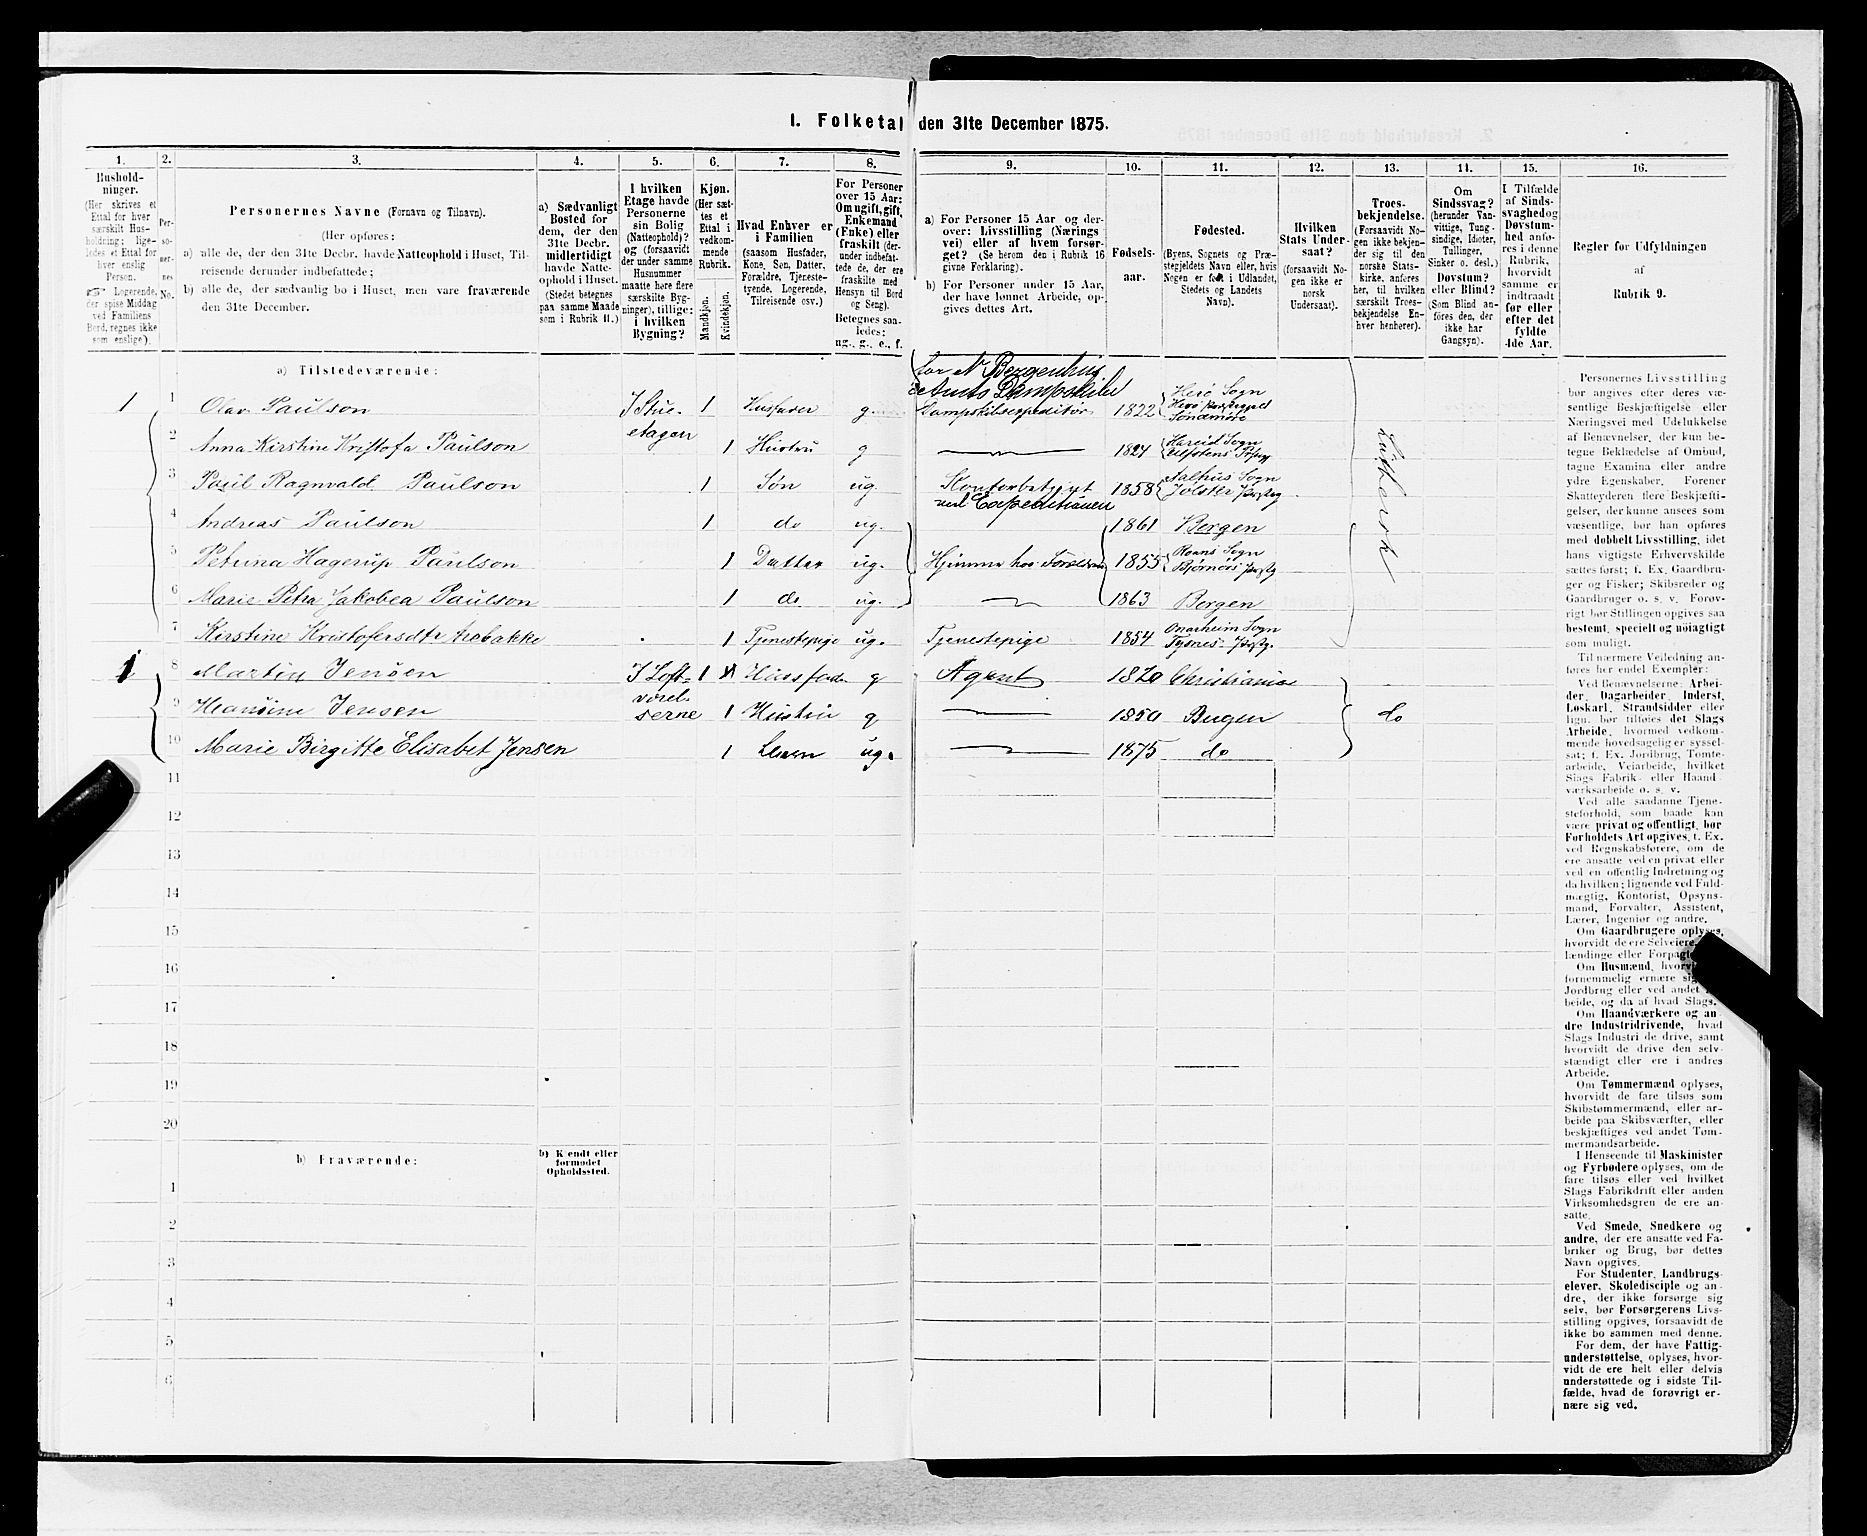 1. Folketal den 31te December 1875.
1.
2.
3.
4.
5.
6.
7.
8.
9.
10.
11.
12.
13.
14.
15.
16.
Hushold-
ninger.
(Her skrives et
Ettal for hver
særskilt Hus-
holdning; lige-
ledes et Ettal for
hver enslig
Person.
☞ Logerende,
der spise Middag
ved Familiens
Bord, regnes ikke
som enslige).
Per-
so-
ner-
nes
No.
Personernes Navne (Fornavn og Tilnavn).
(Her opføres:
a) alle de, der den 31te Decbr. havde Natteophold i Huset, Til-
reisende derunder indbefattede;
b) alle de, der sædvanlig bo i Huset, men vare fraværende
den 31te December.
a) Sædvanligt
Bosted for
dem, der den
31te Decbr.
midlertidigt
havde Natte-
ophold i Huset.
(Stedet betegnes
paa samme Maade
som i Rubrik 11.)
I hvilken
Etage havde
Personerne
sin Bolig
(Natteophold)?
og (forsaavidt
der under samme
Husnummer
maatte høre flere
særskilte Byg-
ninger), tillige:
i hvilken
Bygning?
Kjøn.
(Her sæt-
tes et
Ettal i
vedkom-
mende
Rubrik.
Mandkjøn.
Kvindekjøn.
Hvad Enhver er
i Familien
(saasom Husfader,
Kone, Søn, Datter,
Forældre, Tjeneste-
tyende, Logerende,
Tilreisende osv.)
For Personer
over 15 Aar:
Om ugift, gift,
Enkemand
(Enke) eller
fraskilt (der-
under indbefat-
tede de, der ere
fraskilte med
Hensyn til Bord
og Seng).
Betegnes saa-
ledes:
ug., g., e., f.
a) For Personer 15 Aar og der-
over: Livsstilling (Nærings
vei) eller af hvem forsør-
get? (Se herom den i Rubrik 16
givne Forklaring).
b) For Personer under 15 Aar,
der have lønnet Arbeide, op-
gives dettes Art.
Fødsels-
aar.
Fødested.
(Byens, Sognets og Præ-
stegjeldets Navn eller, hvis
Nogen er født i Udlandet,
Stedets og Landets
Navn).
Hvilken
Stats Under-
saat?
(forsaavidt No-
gen ikke er
norsk
Undersaat).
Troes-
bekjendelse.
(Forsaavidt No-
gen ikke bekjen-
der sig til den
norske Stats-
kirke, anføres
her, til hvilken
særskilt Troes-
bekjendelse En-
hver henhører).
Om
Sindssvag?
(herunder Van-
vittige, Tung-
sindige, Idioter,
Tullinger,
Sinker o. desl.)
Døvstum?
eller Blind?
(Som Blind an-
føres den, der
ikke har
Gangsyn).
I Tilfælde
af Sinds-
svaghed og
Døvstum-
hed anfø-
res i denne
Rubrik,
hvorvidt
samme er
indtraadt
før eller
efter det
fyldte
4de Aar.
Regler for Udfyldningen
af
Rubrik 9.
a) Tilstedeværende:
for N. Bergenhus
Amts Dampskibe
1 1 Olav Paulson I Stue- 1 Husfader g. Dampskibsexpeditør 1822 Herø Sogn
Herø Præstegjeld
Søndmøre
etagen
2 Anna Kirstine Kristofa Paulson 1 Hustru g 1824 Hareid Sogn
3 Paul Ragnvald Paulson 1 Søn ug. Kontorbetjent 1858 Aalhus Sogn
Jølster Præstg
ved Expeditionen
4 Andreas Paulson 1 do ug. 1861 Bergen
5 Petrina Hagerup Paulson 1 Datter ug. Hjemme hos Forældrene 1855 Roans Sogn
Bjørnørs Præstg
6 Marie Petra Jakobea Paulson 1 do ug. 1863 Bergen
7 Kirstine Kristofersdtr Arebakke 1 Tjenestepige ug. Tjenestepige 1854 Onarheim Sogn
Tysnes Præstg.
Luthersk
1 8 Martin Jensen I Loft- 1 Huusfader g Agent 1820 Christiania
værel-
9 Hansine Jensen serne 1 Hustru g 1850 Bergen do
10 Marie Birgitte Elisabet Jensen 1 Barn ug. 1875 do
11
12
13
14
15
16
17
18
19
20
b) Fraværende:
b) Kjendt eller
formodet
Opholdssted.
1
2
3
4
5
6
Personernes Livsstilling
bør angives efter deres væ-
sentlige Beskjæftigelse eller
Næringsvei med Udelukkelse
af Benævnelser, der kun be-
tegne Beklædelse af Ombud,
tagne Examina eller andre
ydre Egenskaber. Forener
Skatteyderen flere Beskjæfti-
gelser, der kunne ansees som
væsentlige, bør han opføres
med dobbelt Livsstilling, idet
hans vigtigste Erhvervskilde
sættes først; f. Ex. Gaardbru-
ger og Fisker; Skibsreder og
Gaardbruger o. s. v. Forøv-
rigt bør Stillingen opgives saa
bestemt, specielt og nöiagtigt
som muligt.
Til nærmere Veiledning an-
føres her endel Exempler:
Ved Benævnelserne: Arbei-
der, Dagarbeider, Inderst,
Løskarl, Strandsidder eller
lign. bør tilføies det Slags
Arbeide, hvormed vedkom-
mende hovedsagelig er syssel-
sat; f. Ex. Jordbrug, Tomte-
arbeide, Veiarbeide, hvilket
Slags Fabrik- eller Haand-
værksarbeide o. s. v.
Ved alle saadanne Tjene-
steforhold, som baade kan
være privat og offentligt, bør
Forholdets Art opgives, t. Ex.
ved Regnskabsførere, om de
ere ansatte ved en privat eller
ved en offentlig Indretning og
da hvilken; lignende ved Fuld-
mægtig, Kontorist, Opsyns-
mand, Forvalter, Assistent,
Lærer, Ingeniør og andre.
Om Gaardbrugere oplyses,
hvorvidt de ere Selveiere,
lændinge eller
Om Husmænd,
fornemmelig ernære
Jordbrug eller ved andet
beide, og da af hvad Slags.
Om Haandværkere og an-
dre Industridrivende, hvad
Slags Industri de drive, samt
hvorvidt de drive den selv-
stændigt eller ere i andres
Arbeide.
Om Tømmermænd oplyses,
hvorvidt de fare tilsøs som
Skibstømmermænd, eller ar-
beide paa Skibsværfter, eller
beskjæftiges ved andet Tøm-
mermandsarbeide.
I Henseende til Maskinister
og Fyrbødere oplyses, om de
fare tilsøs eller ved hvilket
Slags Fabrikdrift eller anden
Virksomhedsgren de ere an-
satte.
Ved Smede, Snedkere og
andre, der ere ansatte ved Fa-
briker og Brug, bør dettes
Navn opgives.
For Studenter, Landbrugs-
elever, Skoledisciple og an-
dre, der ikke forsørge sig
selv, bør Forsørgerens Livs-
stilling opgives, forsaavidt de
ikke bo sammen med denne.
For dem, der have Fattig-
understøttelse, oplyses, hvor-
vidt de ere helt eller delvis
understøttede og i sidste Til-
fælde, hvad de forøvrigt er-
nære sig ved.